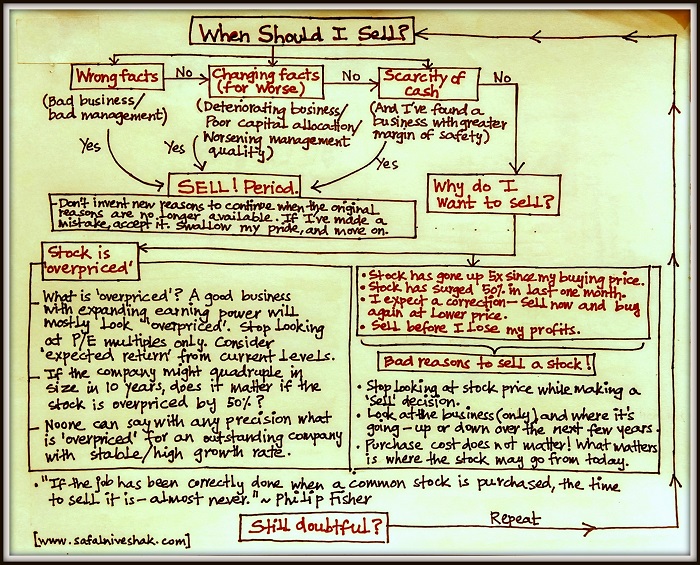 When Should I Sell?
Wrong facts
No
Changing facts
(for worse)
No
Scarcity of
cash
No
(Bad business/
bad management)
(Deteriorating business/
Poor capital allocation/
Worsening management
quality)
(And I've found a
business with greater
margin of safety)
Yes
Yes
Yes
SELL! Period.
Why do I
Want to sell?
- Don't invent new reasons to continue when the original
reasons are no longer available. If I've made a
mistake, accept it. Swallow my pride, and move on.
Stock is
'overpriced'
- What is 'overpriced'? A good business
with expanding earning power will
mostly 'look' "overpriced'. Stop looking
at P/E multiples only. Consider
'expected return' from current levels.
- If the company might quadruple in
size in 10 years, does it matter if the
stock is overpriced by 50%?
- Noone can say with any precision what
is 'overpriced' for an outstanding company
with stable/high growth rate.
• Stock has gone up 5x since my buying price.
• Stock has surged 50% in last one month.
• I expect a correction - sell now and buy
again at lower price.
• Sell before I lose my profits.
Bad reasons to sell a stock!
• Stop looking at stock price while making a
'sell' decision.
• Look at the business (only) and where it's
going - up or down over the next few years.
• Purchase cost does not matter! What matters
is where the stock may go from today.
• "If the job has been correctly done when a common stock is purchased, the time
to sell it is - almost never." ~ Philip Fisher
Still doubtful?
Repeat
[www.safalniveshak.com]